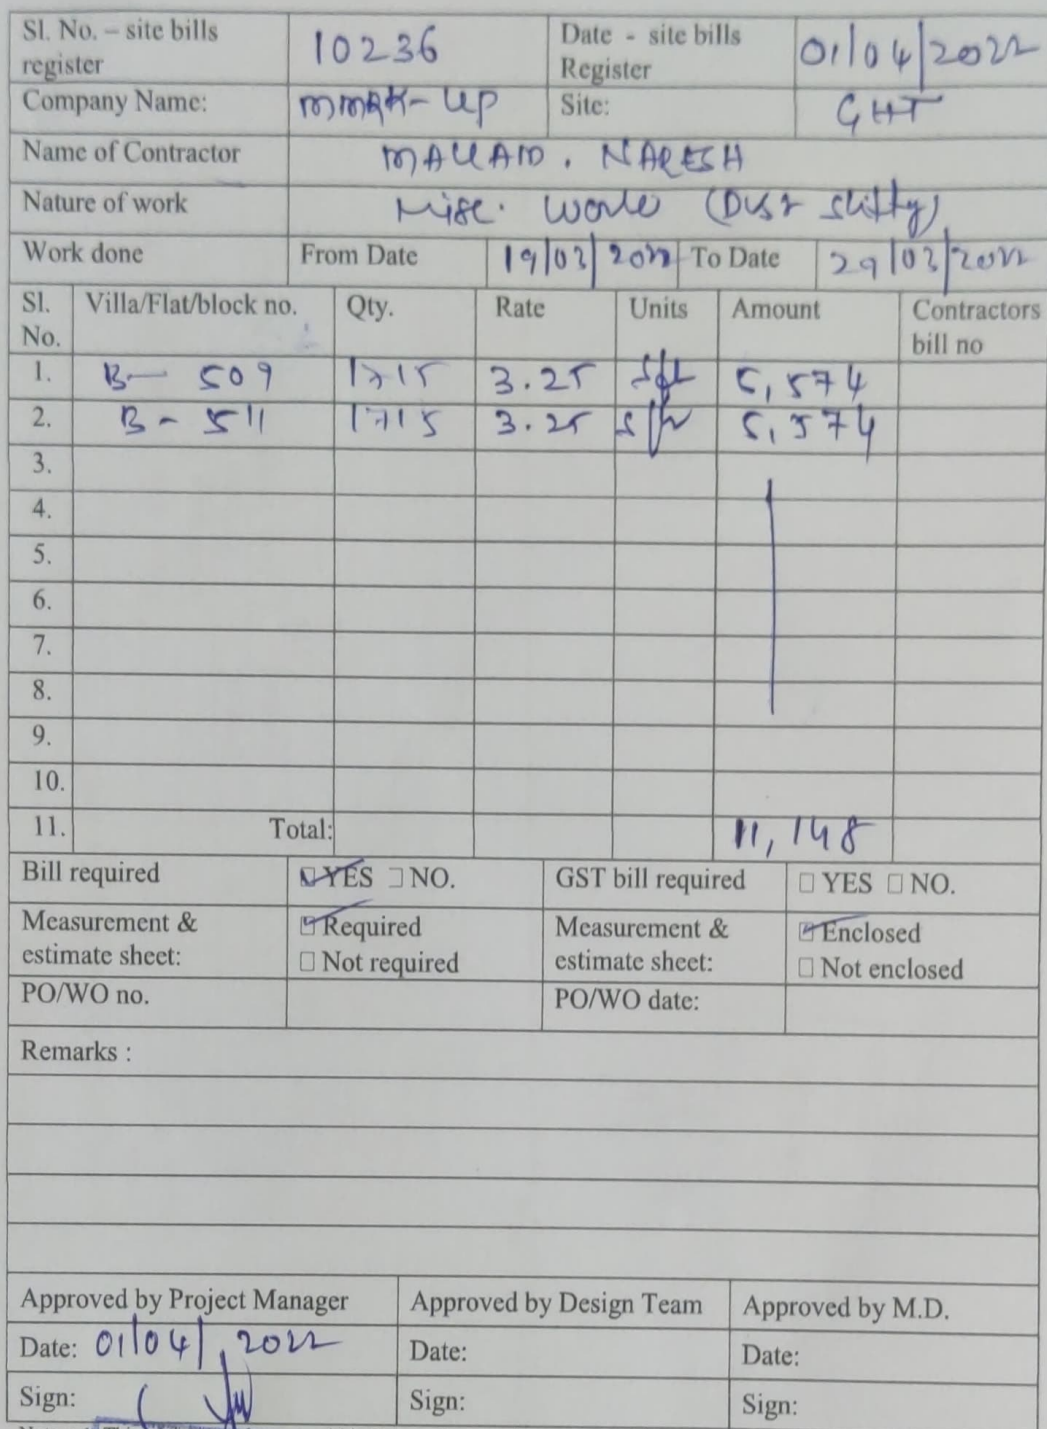 Sl. No. – site bills register 10236 Date - site bills Register 01/04/2022
Company Name: MMRK-UP Site: GHT
Name of Contractor NARESH
Nature of work Misc. Work (Dust
Work done From Date 19/03/2022 To Date 29/03/2022
Sl. No. Villa/Flat/block no. Qty. Rate Units Amount Contractors bill no
1. B- 509 1715 3.25 sft 5,574
2. B- 511 1715 3.25 sft 5,574
3.
4.
5.
6.
7.
8.
9.
10.
11. Total: 11,148
Bill required YES NO. GST bill required YES NO.
Measurement & estimate sheet: Required Measurement & estimate sheet: Enclosed
Not required Not enclosed
PO/WO no. PO/WO date:
Remarks :
Approved by Project Manager Approved by Design Team Approved by M.D.
Date: 01/04/2022 Date: Date:
Sign: Sign: Sign: